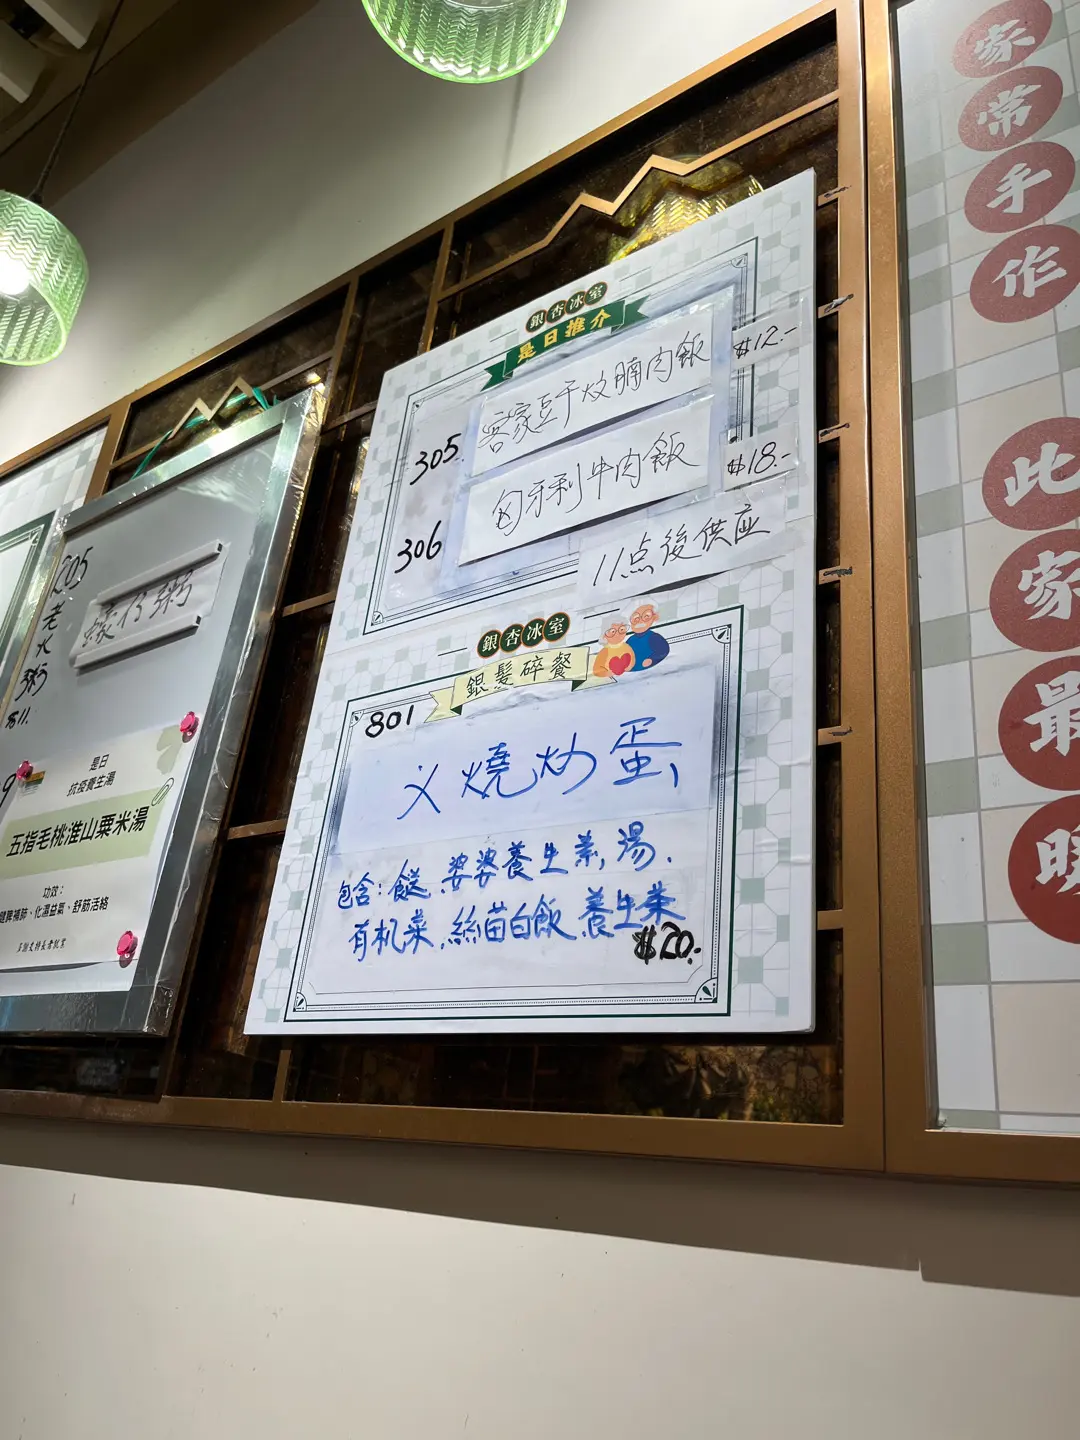 605
老
火
粥
$11.
蠔仔粥
是日
抗疫養生湯
五指毛桃淮山粟米湯
功效：
健脾補肺、化濕益氣、舒筋活絡
銀杏冰室
是日推介
305. 客家豆干炆腩肉飯 $12.-
306 匈牙利牛肉飯 $18.-
11点後供应
銀杏冰室
銀髮碎餐
801
义燒炒蛋
包含：餸，婆婆養生素湯．
有机菜，絲苗白飯 養生茶
$20.-
家常手作
此家最暖